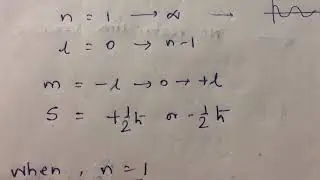 n = 1 → ∞ →
l = 0 → n-1
m = -l → 0 → +l
S = +1/2 ħ or -1/2 ħ
when, n = 1